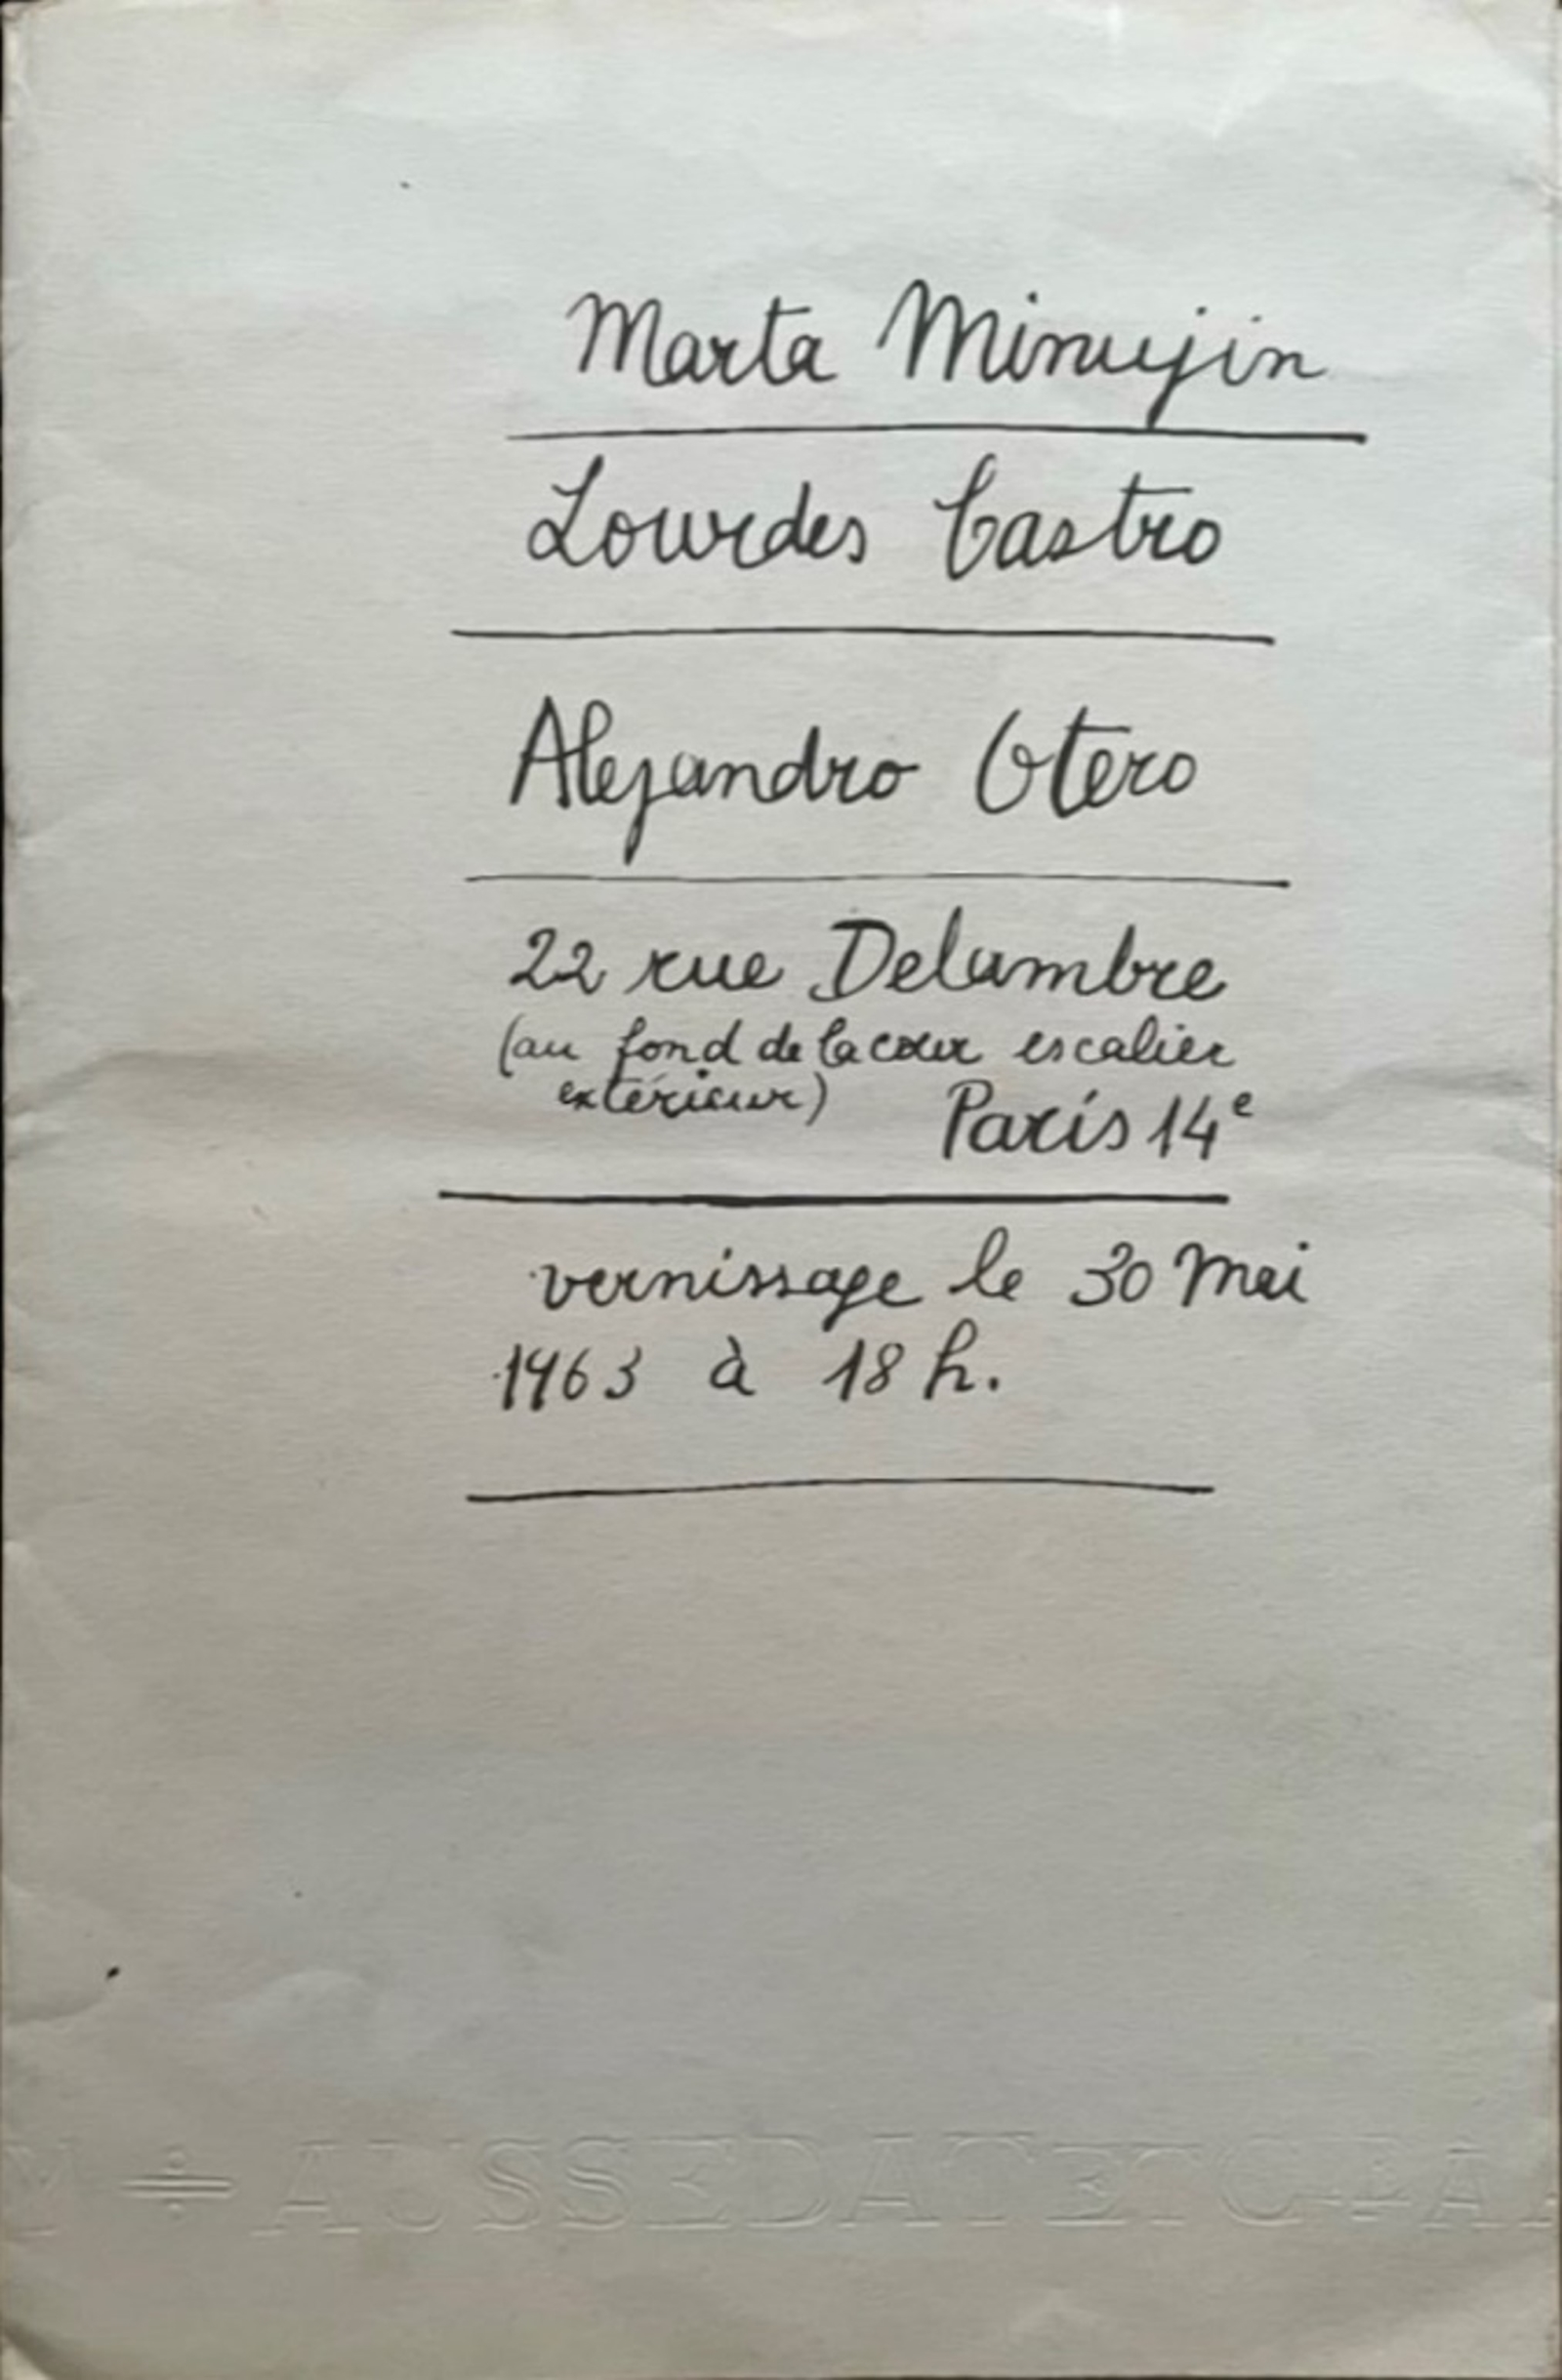 Marta Minujin
Lourdes Castro
Alejandro Otero
22 rue Delambre
(au fond de la cour escalier
extérieur) Paris 14e
vernissage le 30 Mai
1963 à 18 h.
M ÷ AUSSEDAT ET C